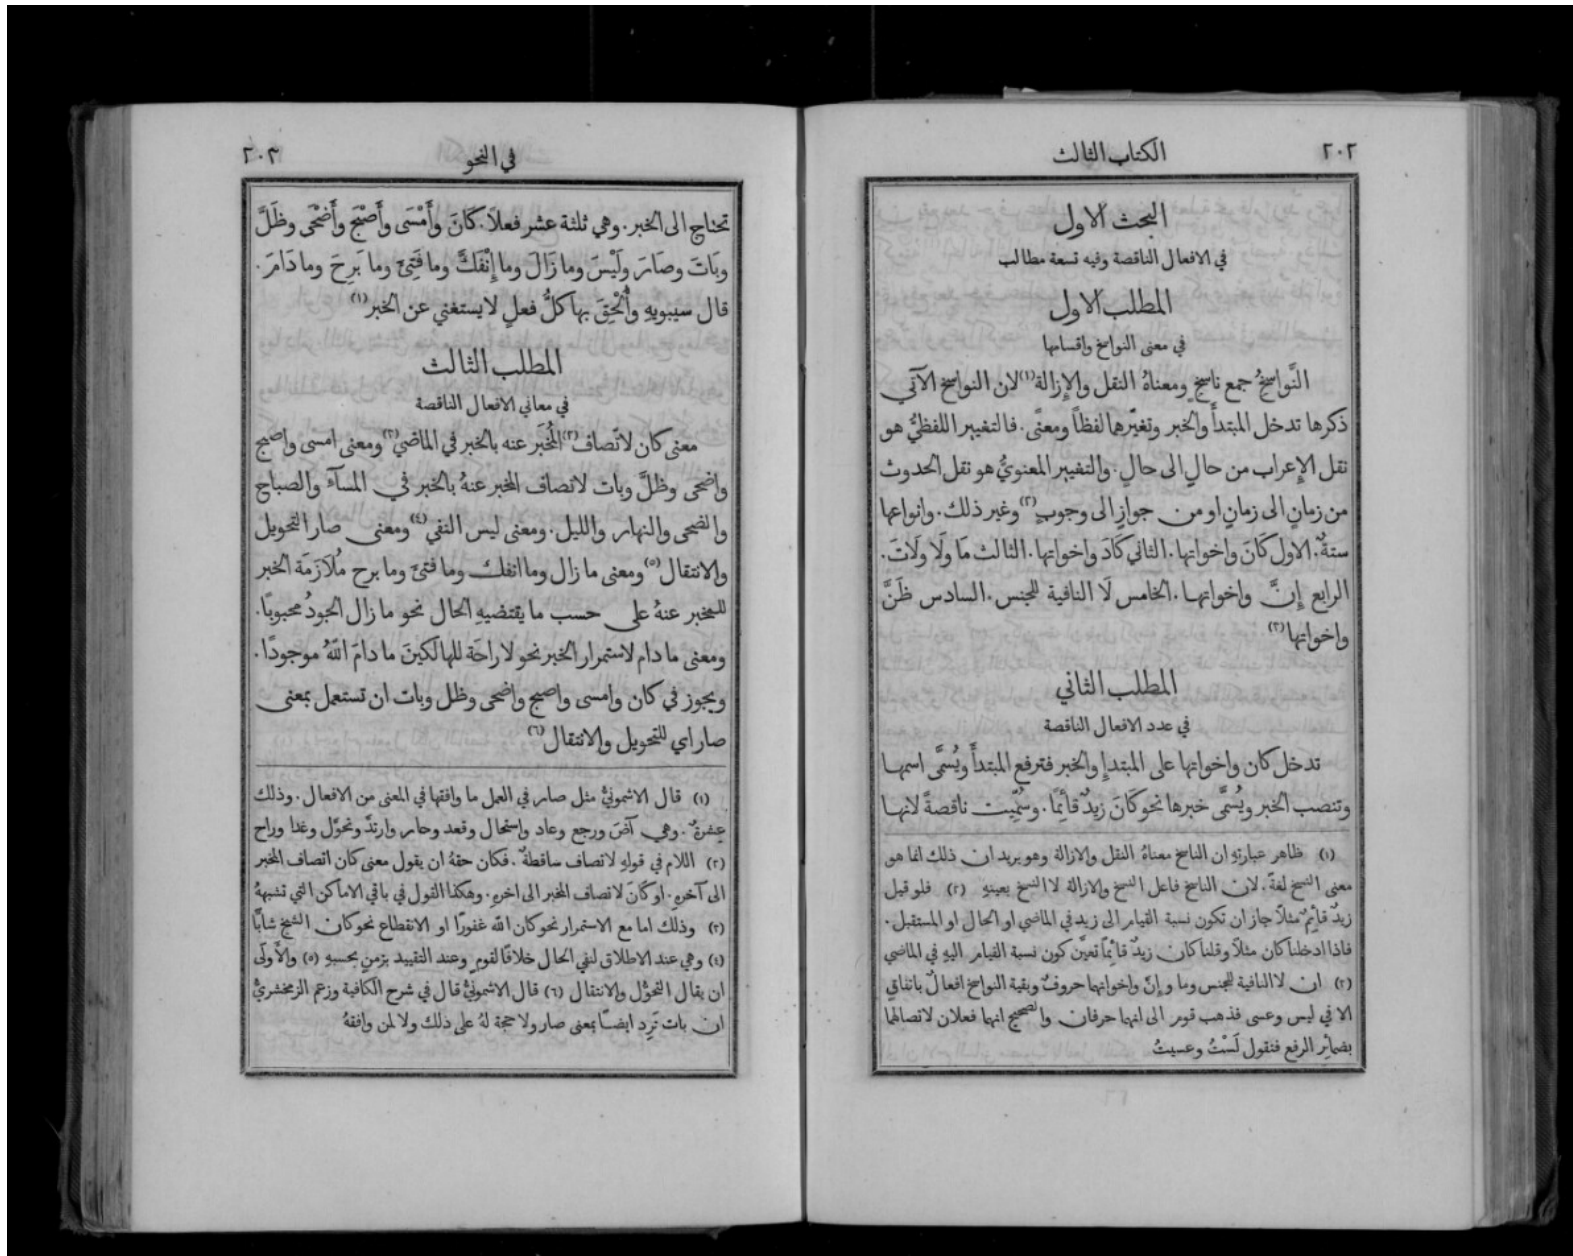 ٢٠٢
الكتاب الثالث
البحث الاول
في الافعال الناقصة وفيه تسعة مطالب
المطلب الاول
في معنى النواسخ واقسامها
النَّواسِخُ جمع ناسخٍ ومعناهُ النقل والإِزالة(١) لان النواسخ الآتي
ذكرها تدخل المبتدأَ والخبر وتغيّرهما لفظاً ومعنًى. فالتغيير اللفظيُّ هو
نقل الإِعراب من حالٍ الى حالٍ. والتغيير المعنويُّ هو نقل الحدوث
من زمانٍ الى زمانٍ او من جوازٍ الى وجوبٍ(٢) وغير ذلك. وانواعها
ستةٌ. الاول كَانَ واخواتها. الثاني كَادَ واخواتها. الثالث مَا ولَا ولَاتَ.
الرابع إِنَّ واخواتها. الخامس لَا النافية للجنس. السادس ظَنَّ
واخواتها(٣)
المطلب الثاني
في عدد الافعال الناقصة
تدخل كان واخواتها على المبتدإِ والخبر فترفع المبتدأَ ويُسَمَّى اسمها
وتنصب الخبر ويُسَمَّى خبرها نحو كَانَ زيدٌ قائِمًا. وسُمِّيت ناقصةً لانها
(١) ظاهر عبارتهِ ان الناسخ معناهُ النقل والازالة وهو يريد ان ذلك انما هو
معنى النسخ لغةً. لان الناسخ فاعل النسخ والازالة لا النسخ بعينهِ (٢) فلو قيل
زيدٌ قائِمٌ مثلًا جاز ان تكون نسبة القيام الى زيد في الماضي او الحال او المستقبل.
فاذا ادخلنا كان مثلًا وقلنا كان زيدٌ قائِمًا تعيَّن كون نسبة القيام اليهِ في الماضي
(٣) ان لا النافية للجنس وما و إِنَّ واخواتهما حروفٌ وبقية النواسخ افعالٌ باتفاقٍ
الا في ليس وعسى فذهب قوم الى انهما حرفان والصحيح انهما فعلان لاتصالهما
بضمائِر الرفع فتقول لَسْتُ وعسيتُ
٢٠٣
في النحو
تحتاج الى الخبر. وهي ثلثة عشر فعلاً. كانَ وأَمْسَى وأَصْبَحَ وأَضْحَى وظَلَّ
وبَاتَ وصَارَ ولَيْسَ وما زَالَ وما إِنْفَكَّ وما فَتِئَ وما بَرِحَ وما دَامَ.
قال سيبويهِ وأُلْحِقَ بها كلُّ فعلٍ لا يستغني عن الخبر(١)
المطلب الثالث
في معاني الافعال الناقصة
معنى كان لاتّصاف(٢) المُخبَر عنه بالخبر في الماضي(٣) ومعنى امسى واصبح
واضحى وظلَّ وبات لاتصاف المخبر عنهُ بالخبر في المسآء والصباح
والضحى والنهار والليل. ومعنى ليس النفي(٤) ومعنى صار التحويل
والانتقال(٥) ومعنى ما زال وما انفك وما فتئَ وما برح مُلَازَمَة الخبر
للمخبر عنهُ على حسب ما يقتضيهِ الحال نحو ما زال الجودُ محبوبًا.
ومعنى ما دام لاستمرار الخبر نحو لا راحَة للهالكينَ ما دامَ اللهُ موجودًا.
ويجوز في كان وامسى واصبح واضحى وظل وبات ان تستعمل بمعنى
صار اي للتحويل والانتقال(٦)
(١) قال الاشمونيُّ مثل صار في العمل ما وافقها في المعنى من الافعال. وذلك
عشرةٌ. وهي آضَ ورجع وعاد واستحال وقعد وحار وارتدَّ وتحوَّل وغدا وراح
(٢) اللام في قولهِ لاتصاف ساقطةٌ. فكان حقهُ ان يقول معنى كان اتصاف المخبر
الى آخرهِ. او كَانَ لاتصاف المخبر الى اخرهِ. وهكذا القول في باقي الاماكن التي تشبههُ
(٣) وذلك اما مع الاستمرار نحو كان الله غفورًا او الانقطاع نحو كان الشيخ شابًّا
(٤) وهي عند الاطلاق لنفي الحال خلافًا لقومٍ وعند التقييد بزمنٍ بحسبهِ (٥) والأَولَى
ان يقال التحوُّل والانتقال (٦) قال الاشمونيُّ قال في شرح الكافية وزعم الزمخشريُّ
ان بات تَرِد ايضًا بمعنى صار ولا حجة لهُ على ذلك ولا لمن وافقهُ